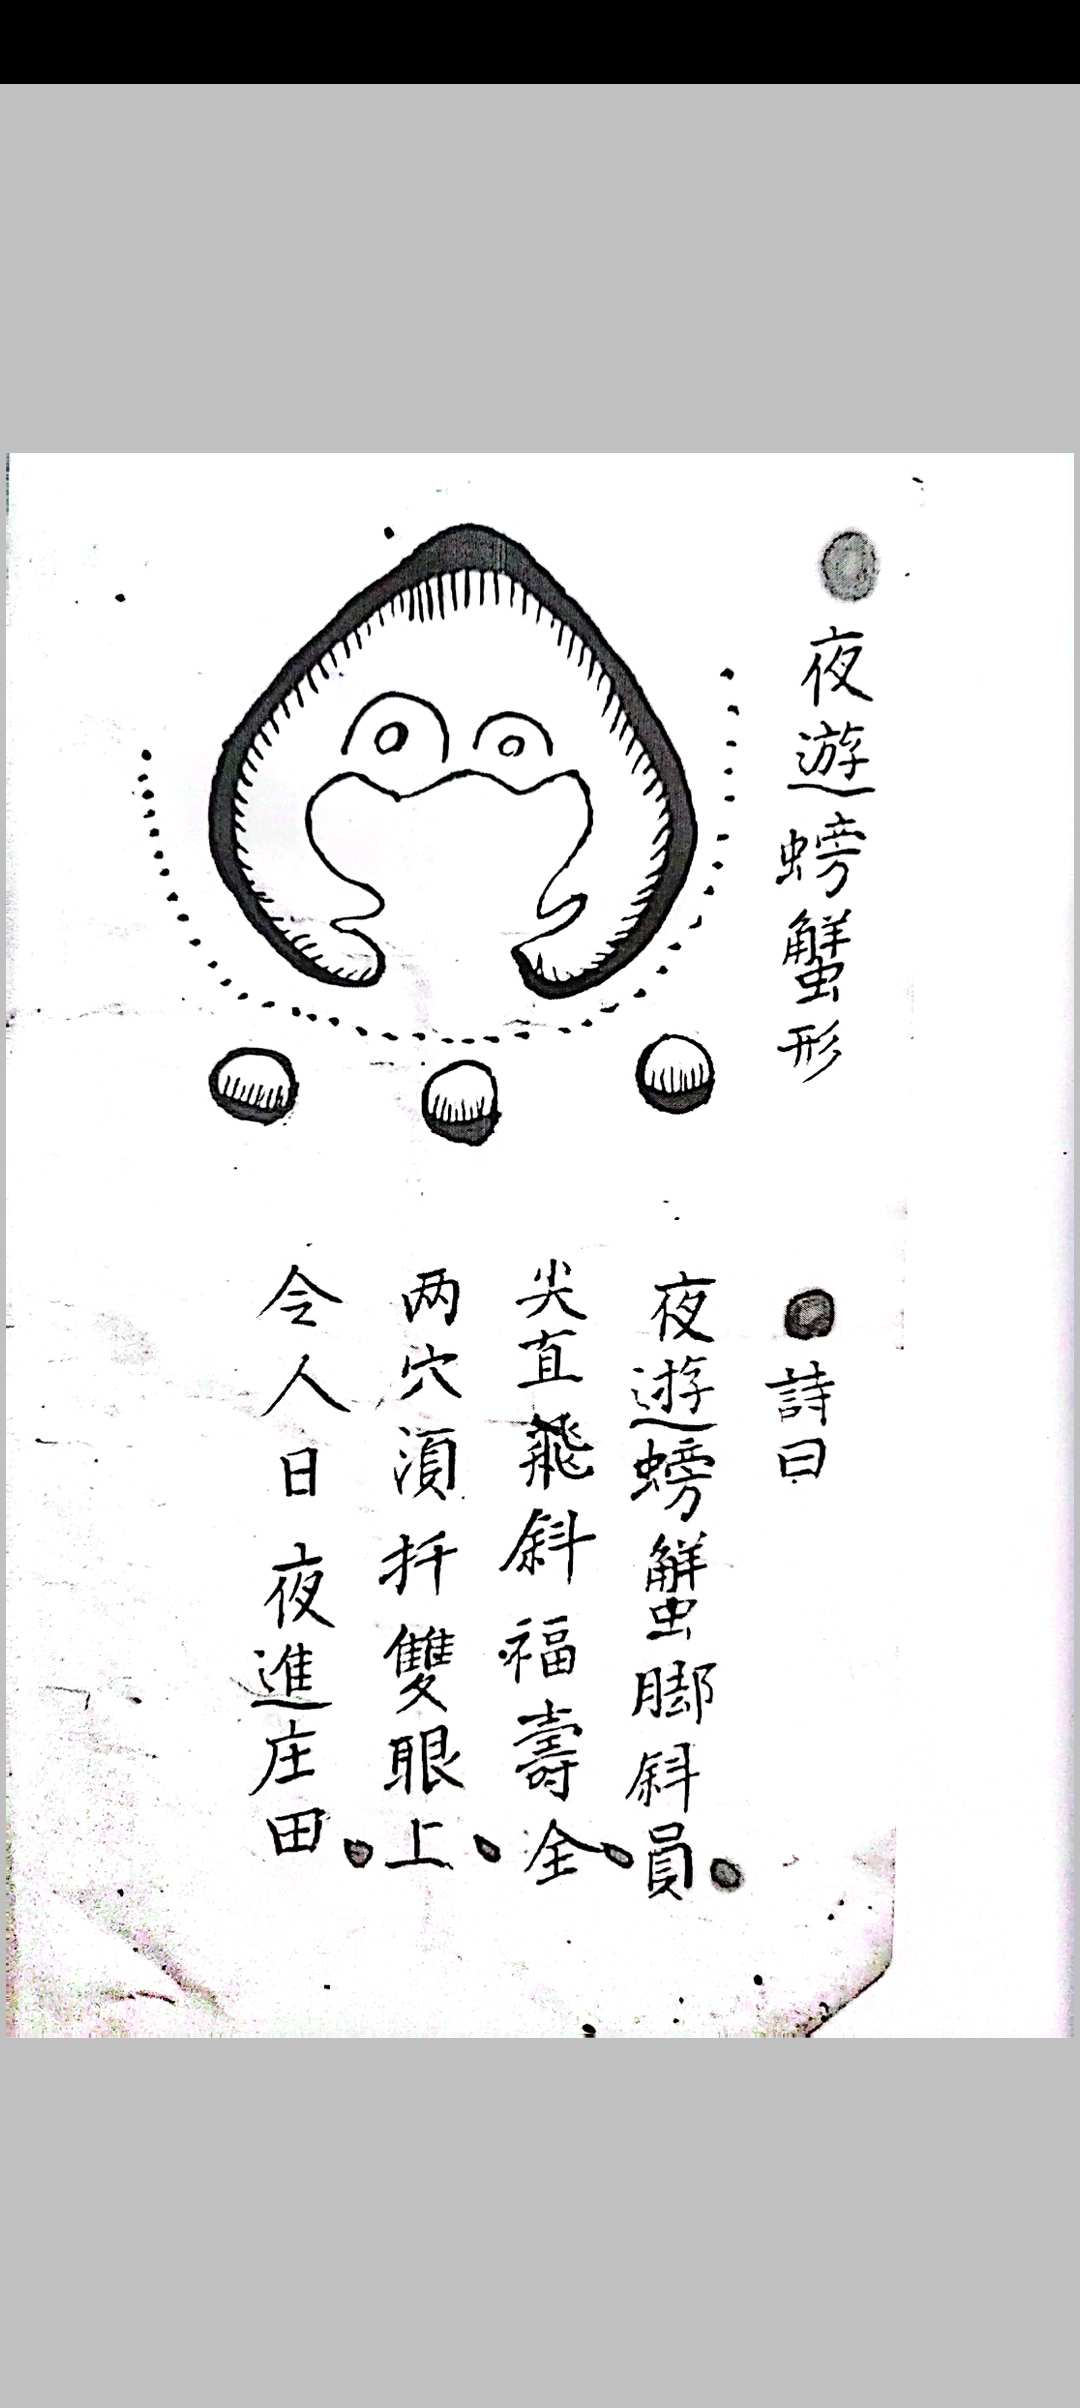 夜遊螃蟹形
詩曰
夜遊螃蟹脚斜員
尖直飛斜福壽全
两穴湏扦雙眼上
令人日夜進庄田